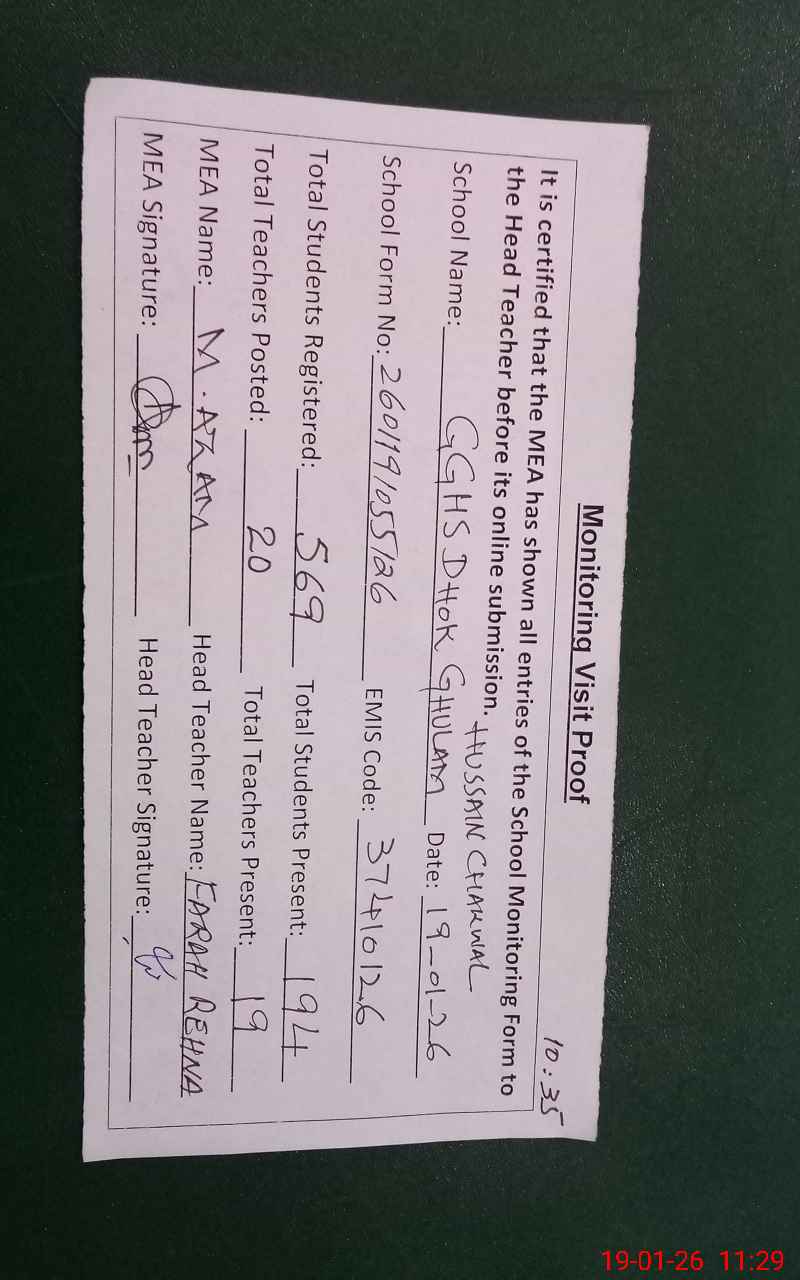 Monitoring Visit Proof
10:35
It is certified that the MEA has shown all entries of the School Monitoring Form to
the Head Teacher before its online submission.
HUSSAIN CHAKWAL
School Name: GGHS DHOK GHULAM Date: 19-01-26
School Form No: 2601191055126 EMIS Code: 37410126
Total Students Registered: 569 Total Students Present: 194
Total Teachers Posted: 20 Total Teachers Present: 19
MEA Name: M. AZAM Head Teacher Name: FARAH REHNA
MEA Signature: Head Teacher Signature:
19-01-26 11:29